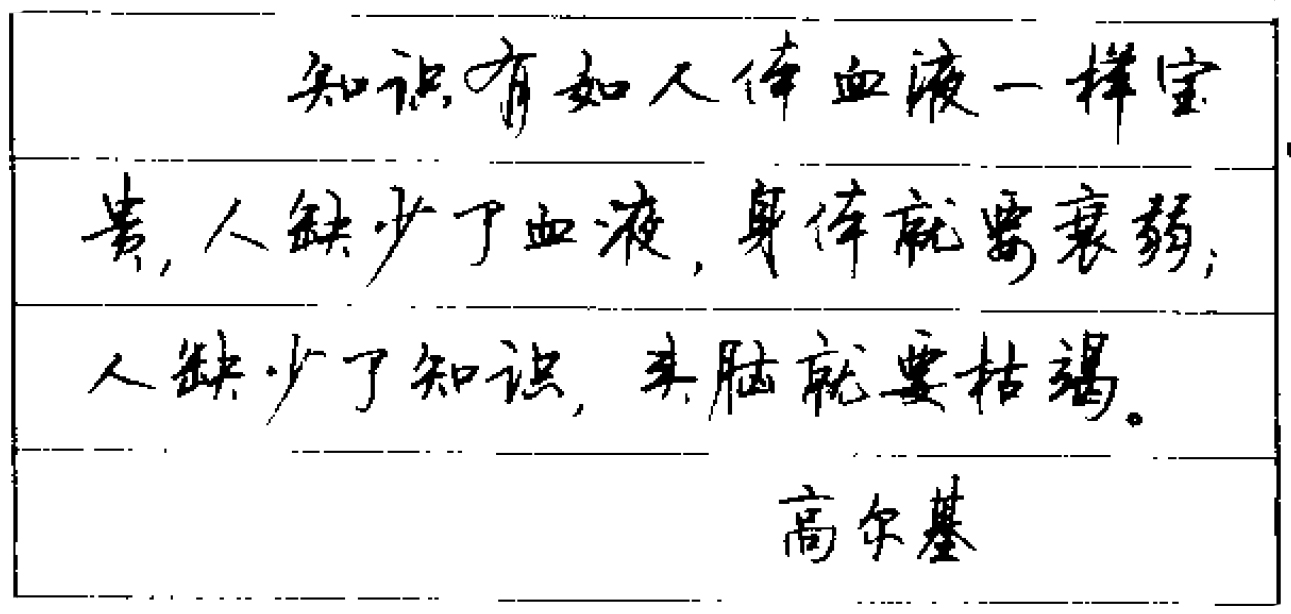 知识有如人体血液一样宝
贵,人缺少了血液,身体就要衰弱;
人缺少了知识,头脑就要枯竭。
高尔基